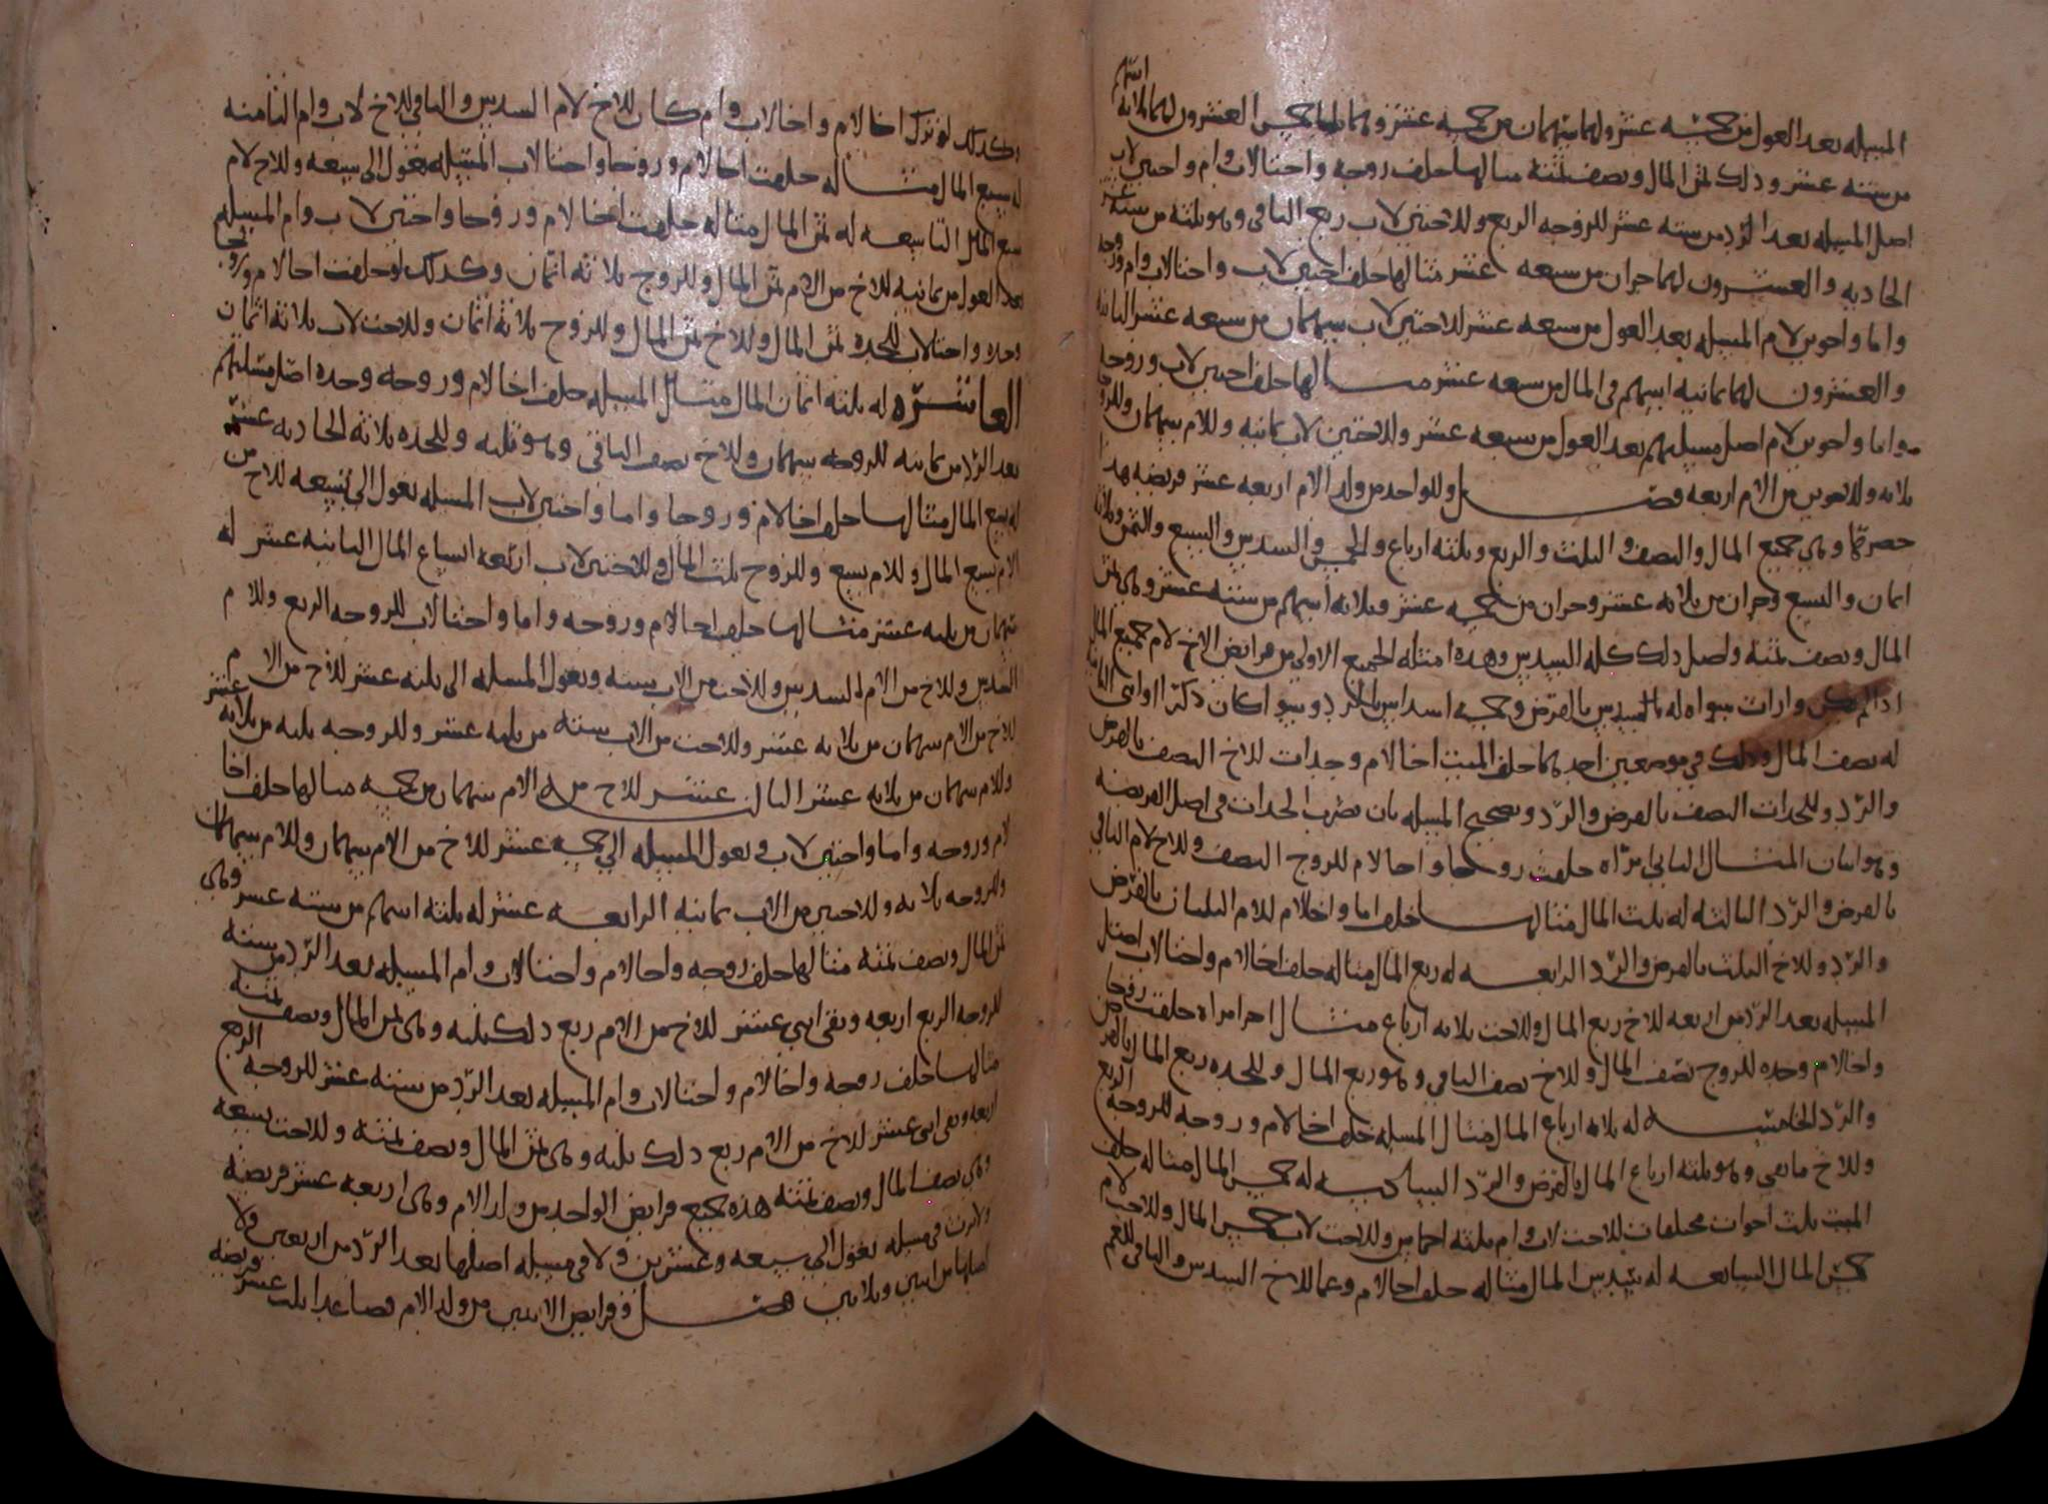 المسله بعد العول من خمسه عشر ولهما سهمان من خمسه عشر وهما العشرون لهما ثلاثة اسهم
من سته عشر وذلك ثمن المال ونصف ثمنه مثالها خلف زوجه واختا لاب وام واختين لاب
اصل المسله بعد الرد من سته عشر للزوجه الربع وللاختين لاب ربع الباقي وهو ثلثه من سته عشر
الحاديه والعشرون لهما جزان من سبعه عشر مثالها خلف اختين لاب واختا لاب وام وزوجه
واما واخوين لام المسله بعد العول من سبعه عشر للاختين لاب سهمان من سبعه عشر الثانيه
والعشرون لهما ثمانيه اسهم في المال من سبعه عشر مثالها خلف اختين لاب وزوجه
واما واخوين لام اصل مسيلتهم بعد العول من سبعه عشر وللاختين لاب ثمانيه وللام سهمان وللزوجه
ثلاثه وللاخوين من الام اربعه فصل وللواحد من ولد الام اربعه عشر فريضه هذا
حصرها وهي جميع المال والنصف والثلث والربع وثلثه ارباع والخمس والسدس والسبع والثمن وثلاثه
اثمان والتسع وجزان من ثلاثه عشر وجزان من خمسه عشر وثلاثه اسهم من سته عشر وهي ثمن
المال ونصف ثمنه واصل ذلك كله السدس وهذه امثله الجميع الاولى من فرايض الاخ لام جميع المال
اذا لم يكن وارث سواه له السدس بالفرض وخمسه اسداس بالرد وسوا كان ذكرا او انثى الثانيه
له نصف المال وذلك في موضعين احدهما خلف الميت اخا لام وجدات للاخ النصف بالفرض
والرد وللجدات النصف بالفرض والرد وتصحيح المسله بان تضرب الجدات في اصل الفريضه
وهو اثنان المثال الثاني مراه خلفت زوجا واخا لام للزوج النصف وللاخ لام الباقي
بالفرض والرد الثالثه له ثلث المال مثالها خلف اما واخا لام للام الثلثان بالفرض
والرد وللاخ الثلث بالفرض والرد الرابعه له ربع المال مثاله خلف اخا لام واختا لاب اصل
المسله بعد الرد من اربعه للاخ ربع المال وللاخت ثلاثه ارباع مثال اخر امراه خلفت زوجا
واخا لام وجده للزوج نصف المال وللاخ نصف الباقي وهو ربع المال وللجده ربع المال بالفرض
والرد الخامسه له ثلاثه ارباع المال مثال المسله خلف اخا لام وزوجه للزوجه الربع
وللاخ ما بقي وهو ثلثه ارباع المال بالفرض والرد السادسه له خمس المال مثاله خلف
الميت ثلث اخوات مختلفات للاخت لاب وام ثلثه اخماس وللاخت لاب خمس المال وللاخت لام
خمس المال السابعه له سدس المال مثاله خلف اخا لام وعما للاخ السدس والباقي للعم
وكذلك لو ترك اخا لام واخا لاب وام كان للاخ لام السدس والباقي للاخ لاب وام الثامنه
له سبع المال مثاله خلفت اخا لام وزوجا واختا لاب المسله تعول الى سبعه وللاخ لام
سبع المال التاسعه له ثمن المال مثاله خلفت اخا لام وزوجا واختين لاب وام المسله
بعد العول من ثمانيه للاخ من الام ثمن المال وللزوج ثلاثه اثمان وكذلك لو خلفت اخا لام وزوجا
وجده واختا لاب للجده ثمن المال وللاخ ثمن المال وللزوج ثلاثة اثمان وللاخت لاب ثلاثة اثمان
العاشره له ثلثه اثمان المال مثال المسله خلف اخا لام وزوجه وجده اصل مسلتهم
بعد الرد من ثمانيه للزوجه سهمان وللاخ نصف الباقي وهو ثلثه وللجده ثلاثه الحاديه عشر
له تسع المال مثالها خلف اخا لام وزوجا واما واختين لاب المسله تعول الى تسعه للاخ من
الام تسع المال وللام تسع وللزوج ثلث المال وللاختين لاب اربعه اتساع المال الثانيه عشر له
سهمان من ثلثه عشر مثالها خلف اخا لام وزوجه واما واختا لاب للزوجه الربع وللام
السدس وللاخ من الام السدس وللاخت من الاب سته وتعول المسله الى ثلثه عشر للاخ من الام
للاخ من الام سهمان من ثلاثه عشر وللاخت من الاب سته من ثلثه عشر وللزوجه ثلثه من ثلاثه عشر
وللام سهمان من ثلاثه عشر الثالث عشر للاخ من الام سهمان من خمسه مثالها خلف اخا
لام وزوجه واما واختين لاب وتعول المسله الى خمسه عشر للاخ من الام سهمان وللام سهمان
وللزوجه ثلاثه وللاختين من الاب ثمانيه الرابعه عشر له ثلثه اسهم من سته عشر وهي
ثمن المال ونصف ثمنه مثالها خلف زوجه واخا لام واختا لاب وام المسله بعد الرد من سته
للزوجه الربع اربعه وبقي اثني عشر للاخ من الام ربع ذلك ثلثه وهي ثمن المال ونصف ثمنه
مثالها خلف زوجه واخا لام واختا لاب وام المسله بعد الرد من سته عشر للزوجه الربع
اربعه وبقي اثني عشر للاخ من الام ربع ذلك ثلثه وهي ثمن المال ونصف ثمنه وللاخت تسعه
وهي نصف المال ونصف ثمنه هذه جميع فرايض الواحد من ولد الام وهي اربعه عشر فريضه
ولا يرث في مسله تعول الى سبعه وعشرين ولا في مسله اصلها بعد الرد من اربعين ولا
اصلها من اثنين وثلاثين فصل في فرايض الاثنين من ولد الام فصاعدا ثلث عشر فريضه